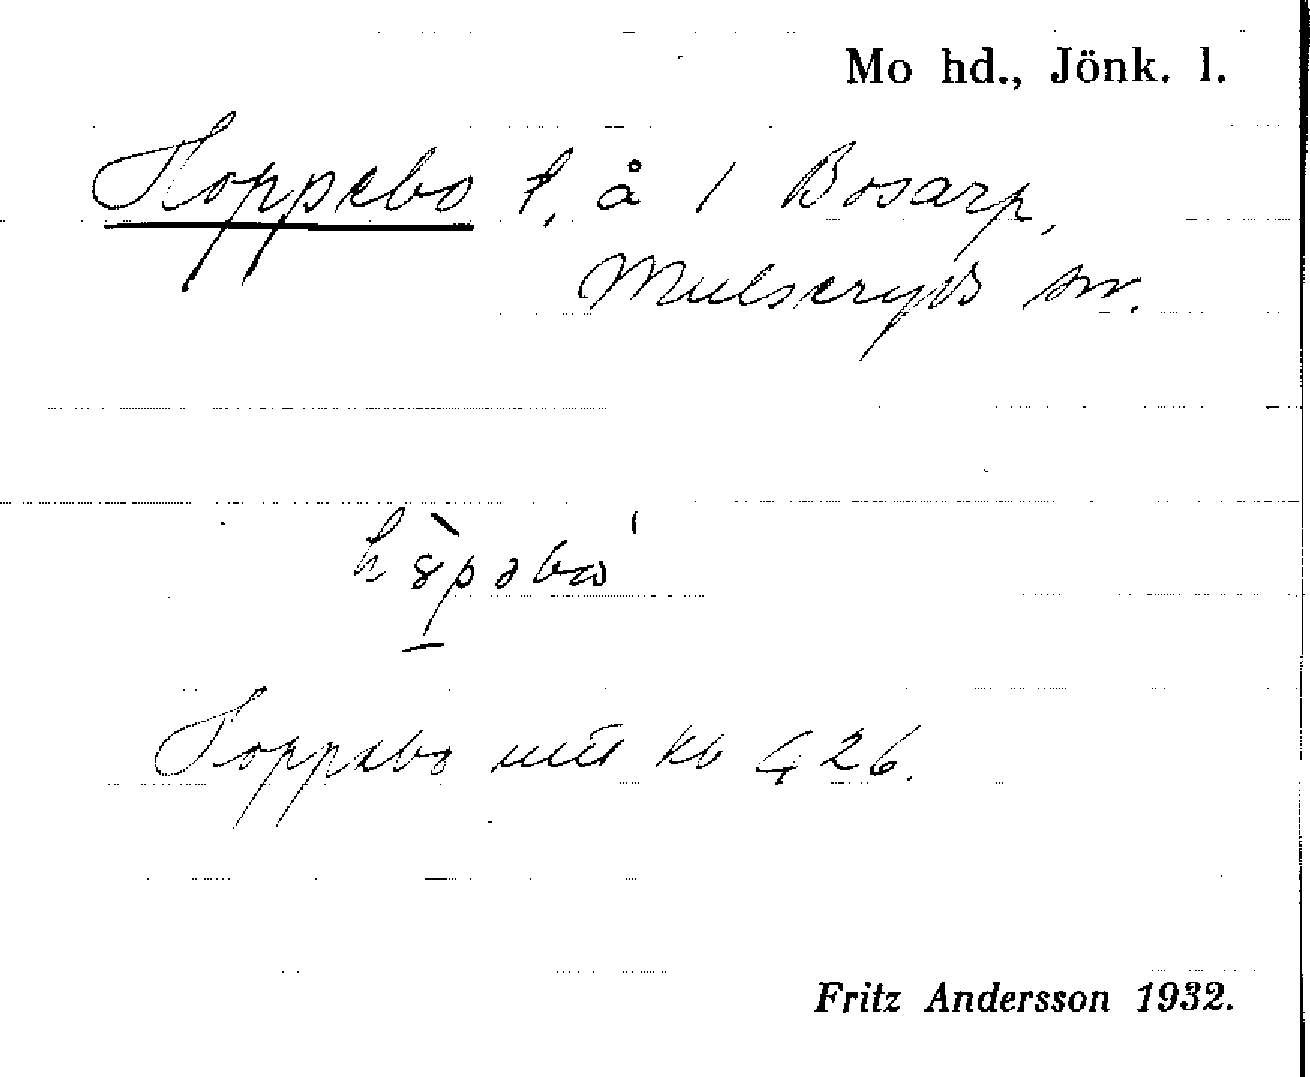 Mo hd., Jönk. l.
Hoppebo t, å 1 Bosarp,
Mulseryds sn.
Hoppebo kb 26.
Fritz Andersson 1932.